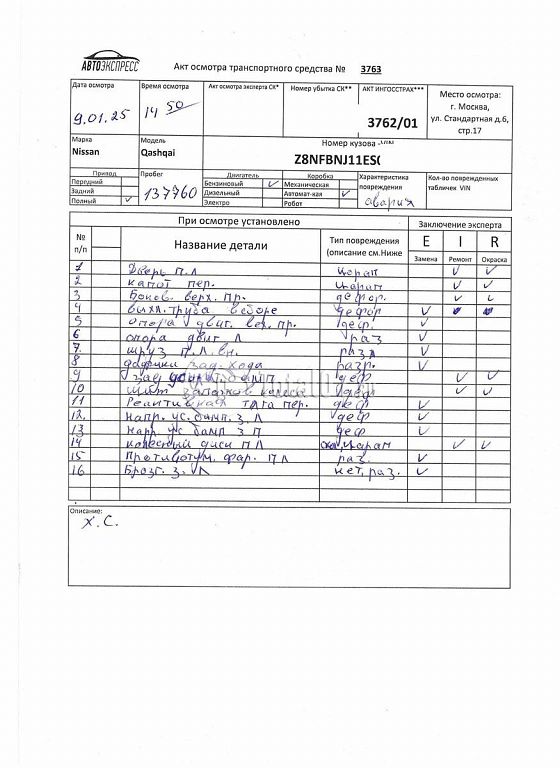 АВТОЭКСПРЕСС
Акт осмотра транспортного средства № 3763
Дата осмотра
9.01.25
Время осмотра
14 50
Акт осмотра эксперта СК*
Номер убытка СК**
АКТ ИНГОССТРАХ***
3762/01
Место осмотра:
г. Москва,
ул. Стандартная д.6,
стр.17
Марка
Nissan
Модель
Qashqai
Номер кузова
Z8NFBNJ11ES
Привод
Передний
Задний
Полный ✓
Пробег
137760
Двигатель
Бензиновый ✓
Дизельный
Электро
Коробка
Механическая
Автомат-кая ✓
Робот
Характеристика
повреждения
авария
Кол-во поврежденных
табличек VIN
При осмотре установлено
Заключение эксперта
№
п/п
Название детали
Тип повреждения
(описание см.Ниже
E I R
Замена Ремонт Окраска
1 Дверь П.Л царап ✓ ✓
2 капот пер. царап. ✓ ✓
3 Боков. верх. пр. дефор. ✓ ✓
4 выхл. труба в сборе дефор ✓
5 опора двиг. вех. пр. деф. ✓
6 опора двиг Л раз ✓
7. шруз П.Л. вн. разл ✓
8 датчики зад. хода разр. ✓
9 зад деф ✓ ✓
10 колеса деф ✓ ✓
11 Реактивная тяга пер. деф ✓
12. напр. ус. бамп. З Л деф ✓
13 напр ус бамп З П деф ✓
14 колесный диск П Л царап ✓ ✓
15 Противотум. фар. П Л раз. ✓
16 Брызг. З. Л нет, раз. ✓
Описание:
Х. С.